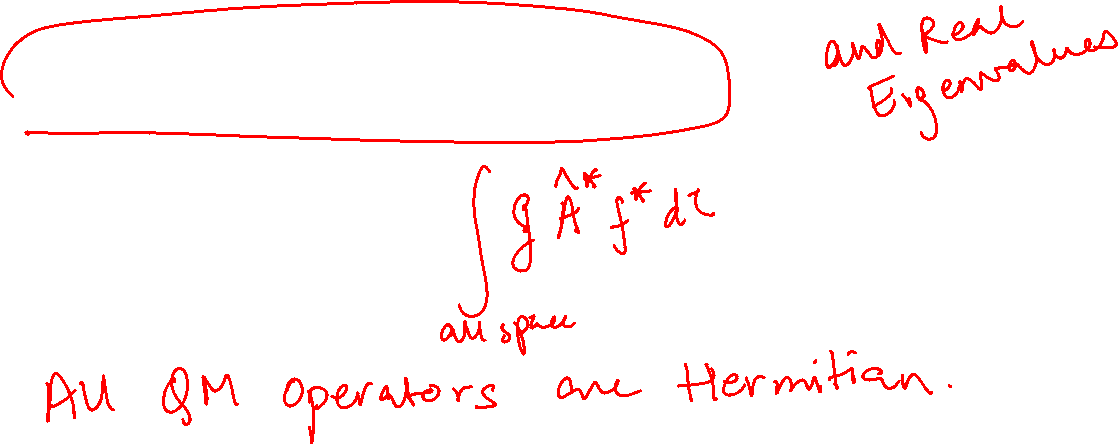 and Real
Eigenvalues
∫ g Â* f* dτ
all space
All QM operators are Hermitian.